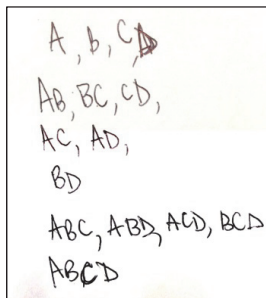 A, B, C, D
AB, BC, CD,
AC, AD,
BD
ABC, ABD, ACD, BCD
ABCD